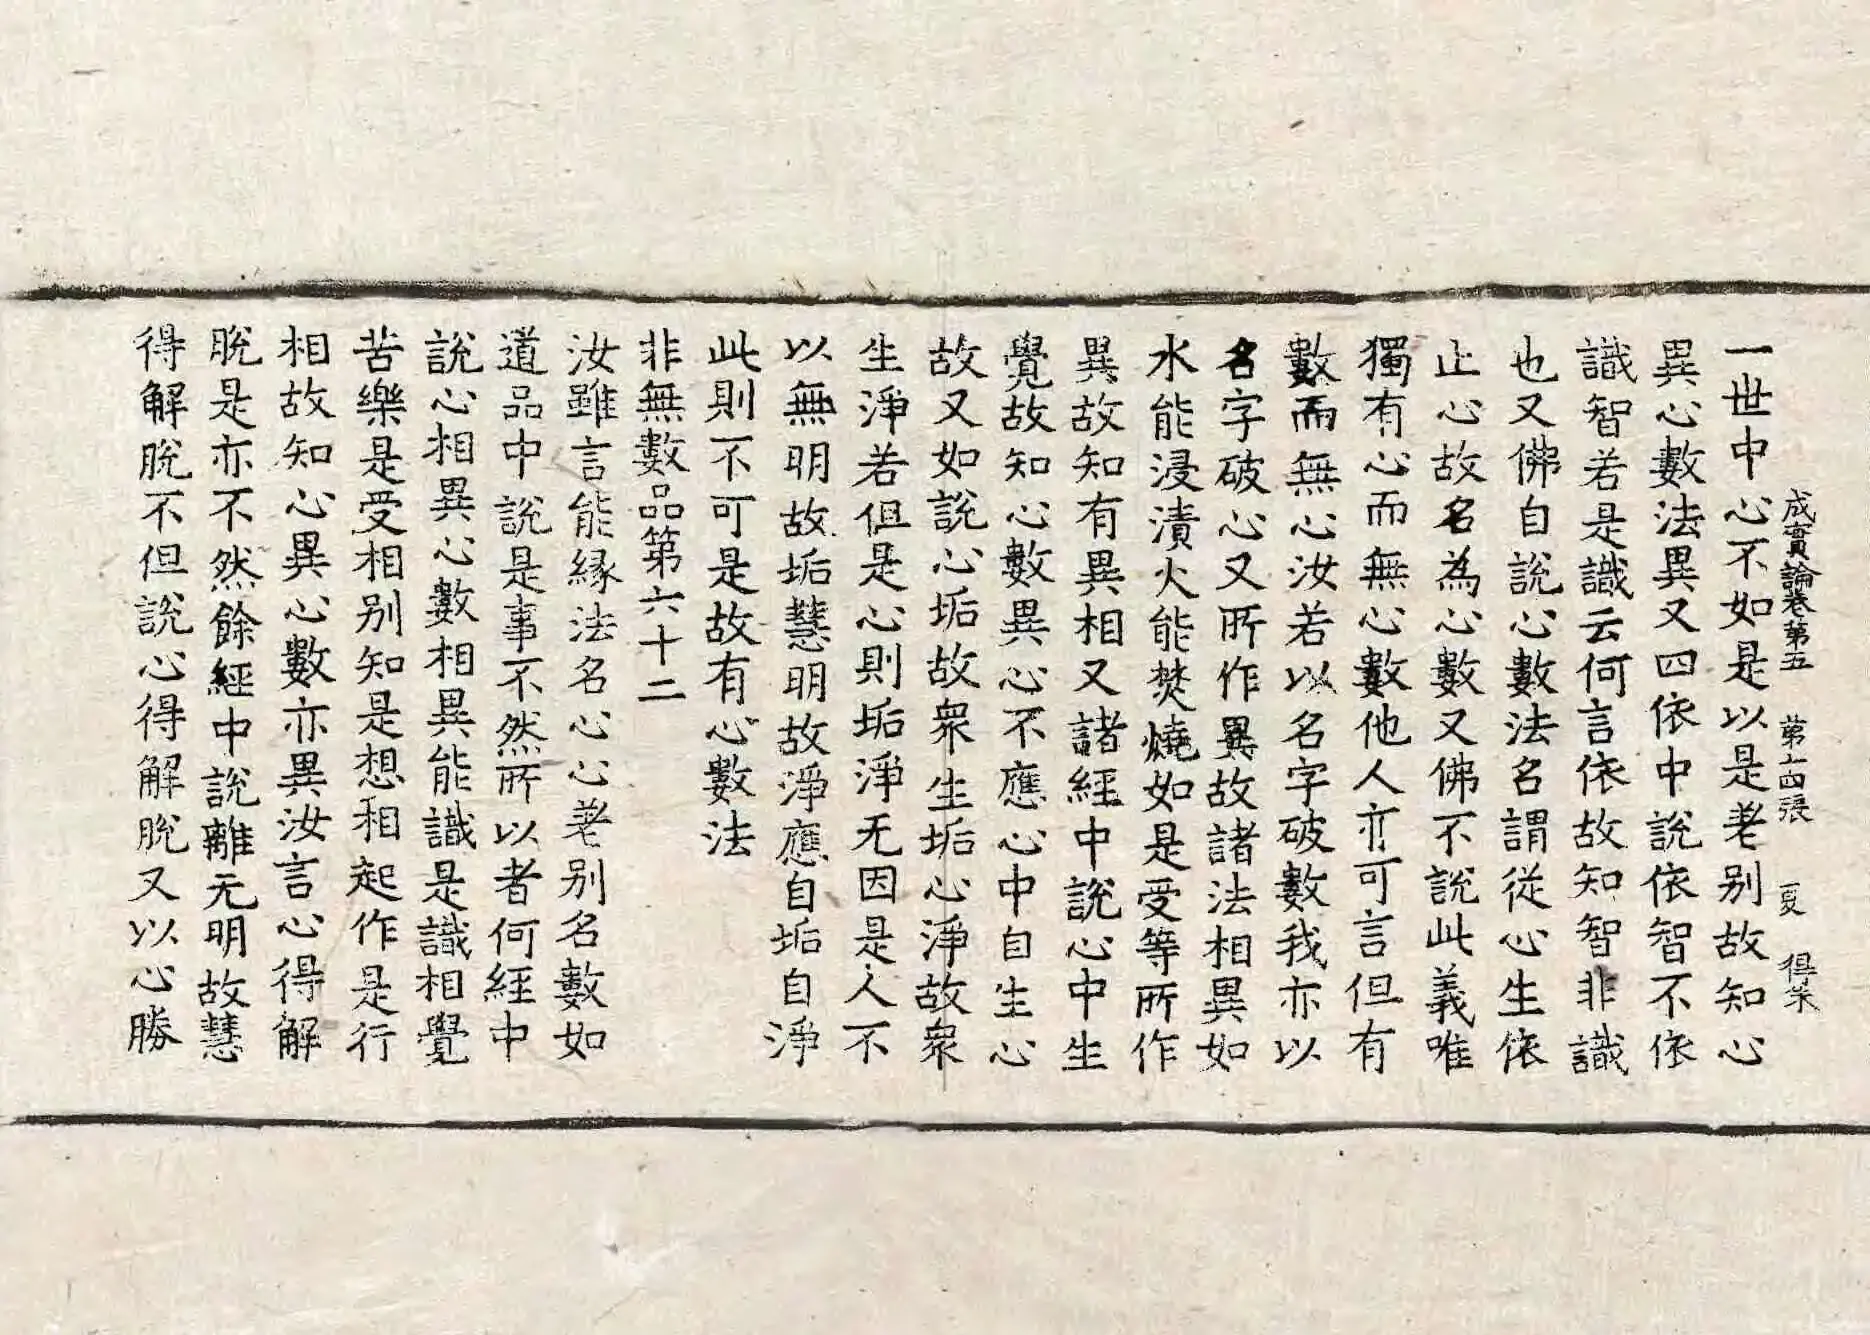 成實論卷第五 第十四張 夏 得茱
一世中心不如是以是差别故知心
異心數法異又四依中說依智不依
識智若是識云何言依故知智非識
也又佛自說心數法名謂從心生依
止心故名為心數又佛不說此義唯
獨有心而無心數他人亦可言但有
數而無心汝若以名字破數我亦以
名字破心又所作異故諸法相異如
水能浸漬火能焚燒如是受等所作
異故知有異相又諸經中說心中生
覺故知心數異心不應心中自生心
故又如說心垢故衆生垢心淨故衆
生淨若但是心則垢淨无因是人不
以無明故垢慧明故淨應自垢自淨
此則不可是故有心數法
非無數品第六十二
汝雖言能緣法名心心差别名數如
道品中說是事不然所以者何經中
說心相異心數相異能識是識相覺
苦樂是受相别知是想相起作是行
相故知心異心數亦異汝言心得解
脫是亦不然餘經中說離无明故慧
得解脫不但說心得解脫又以心勝